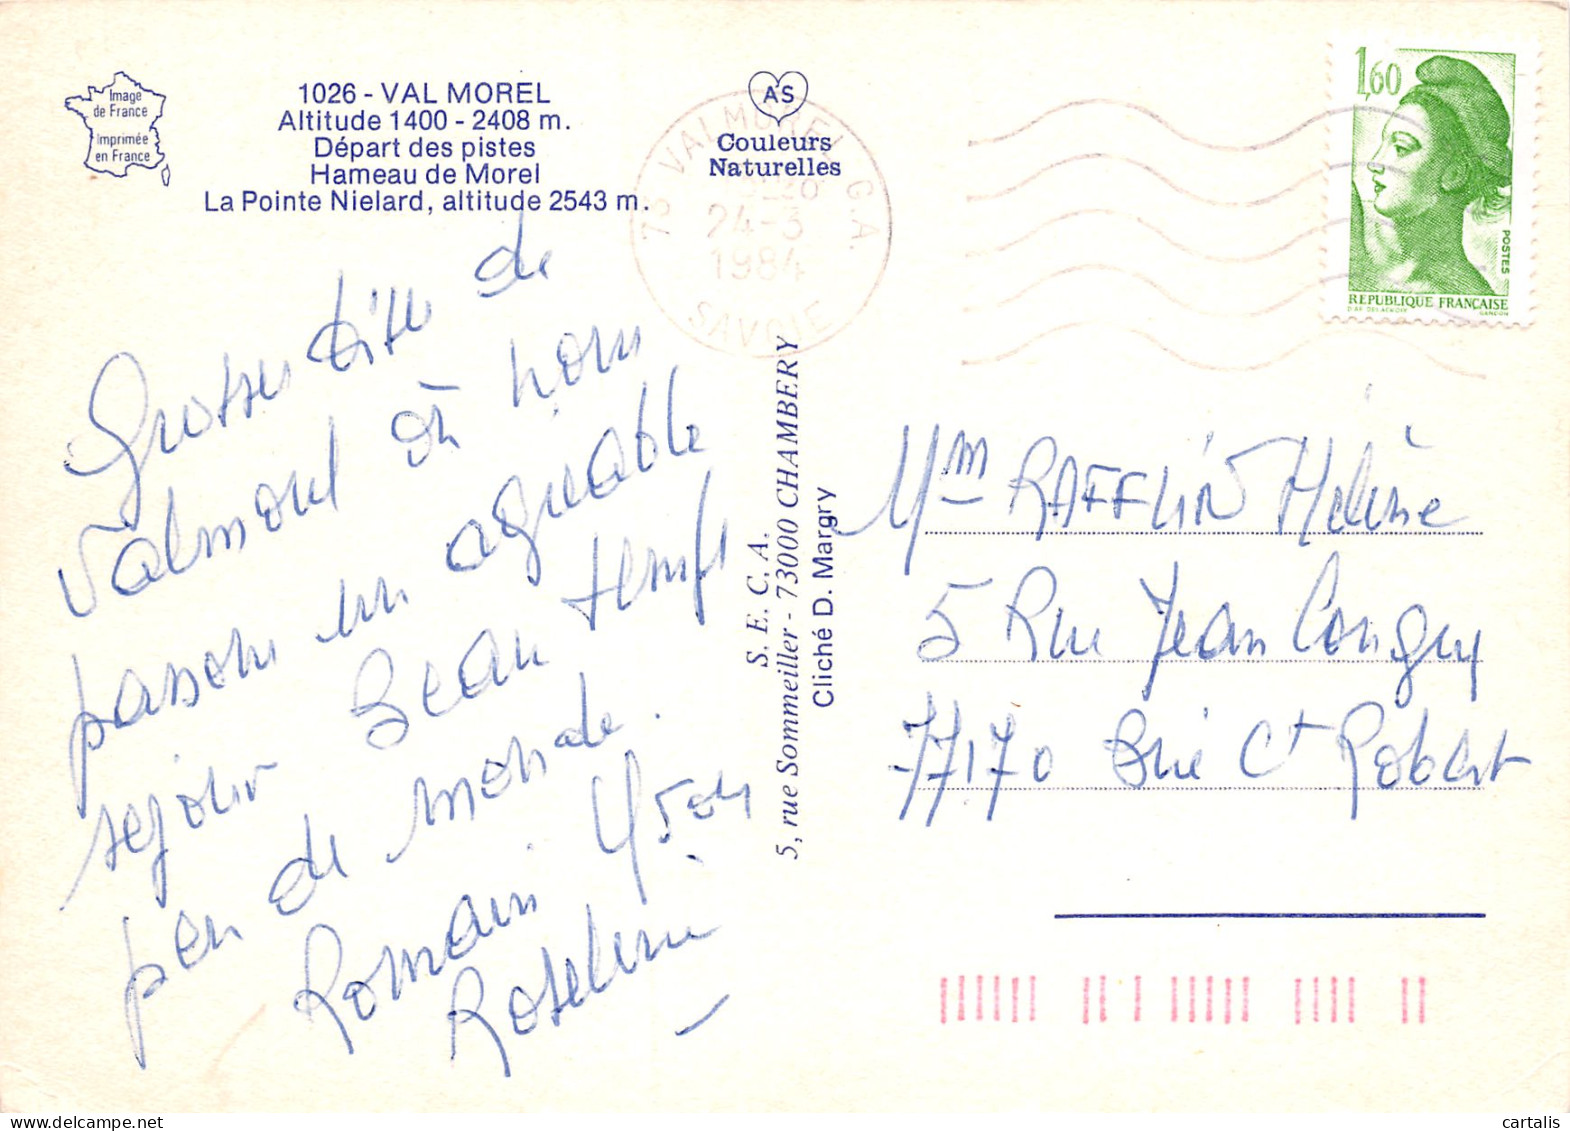 Image
de France
Imprimée
en France
1026 - VAL MOREL
Altitude 1400 - 2408 m.
Départ des pistes
Hameau de Morel
La Pointe Nielard, altitude 2543 m.
A S
Couleurs
Naturelles
73 VALMOREL C.A.
24-3
1984
SAVOIE
1,60
POSTES
REPUBLIQUE FRANÇAISE
GANDON
Grosses bises de
Valmorel où nous
passons un agréable
sejour Beau temps
peu de monde.
Romain. Yson
Roselène
S. E. C. A.
5, rue Sommeiller - 73000 CHAMBERY
Cliché D. Margry
Mm RAFFLIN Hélène
5 Rue Jean Conguy
77170 Brie Ct Robert
cartalis